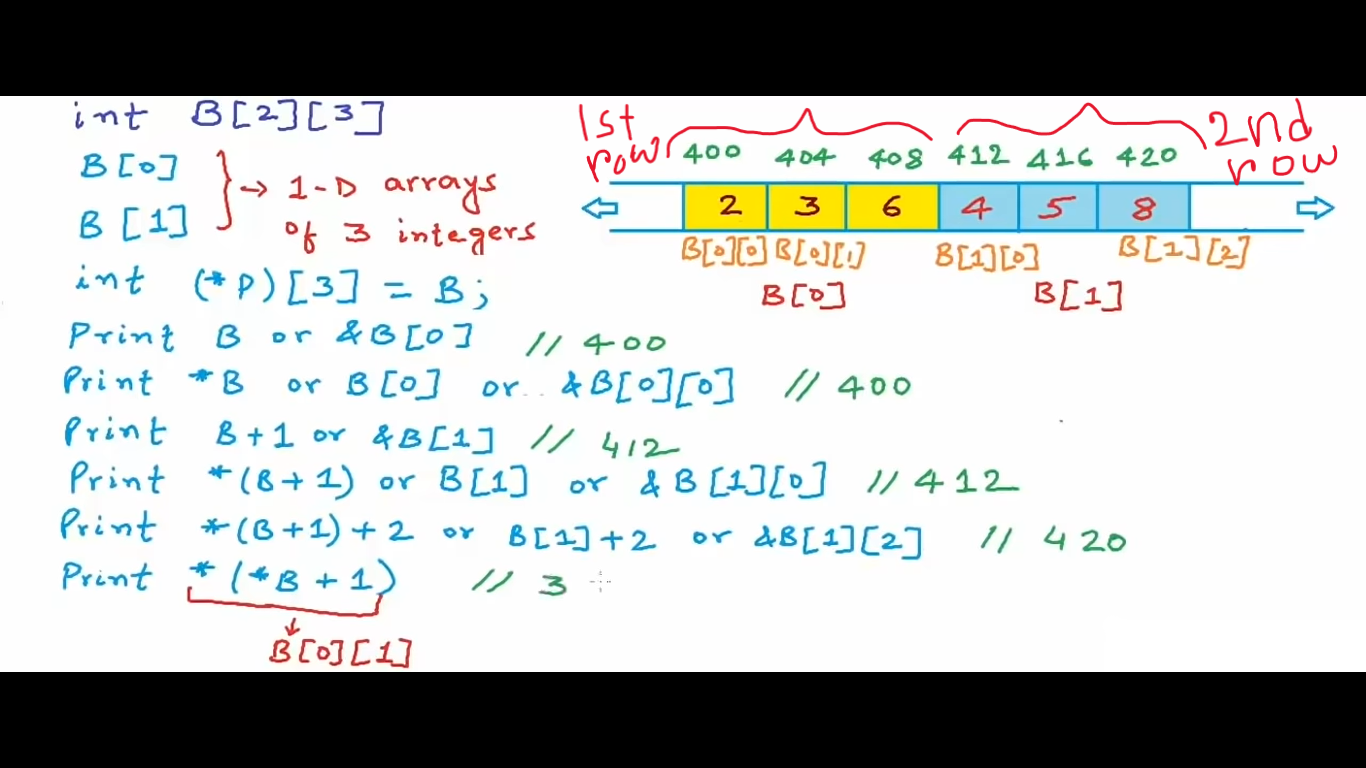 int B[2][3]
B[0]
B[1]
→ 1-D arrays
of 3 integers
int (*P)[3] = B;
Print B or &B[0] // 400
Print *B or B[0] or &B[0][0] // 400
Print B+1 or &B[1] // 412
Print *(B+1) or B[1] or &B[1][0] // 412
Print *(B+1)+2 or B[1]+2 or &B[1][2] // 420
Print *(*B+1) // 3
B[0][1]
1st
row
2nd
row
400 404 408 412 416 420
2 3 6 4 5 8
B[0][0] B[0][1] B[1][0] B[1][2]
B[0] B[1]